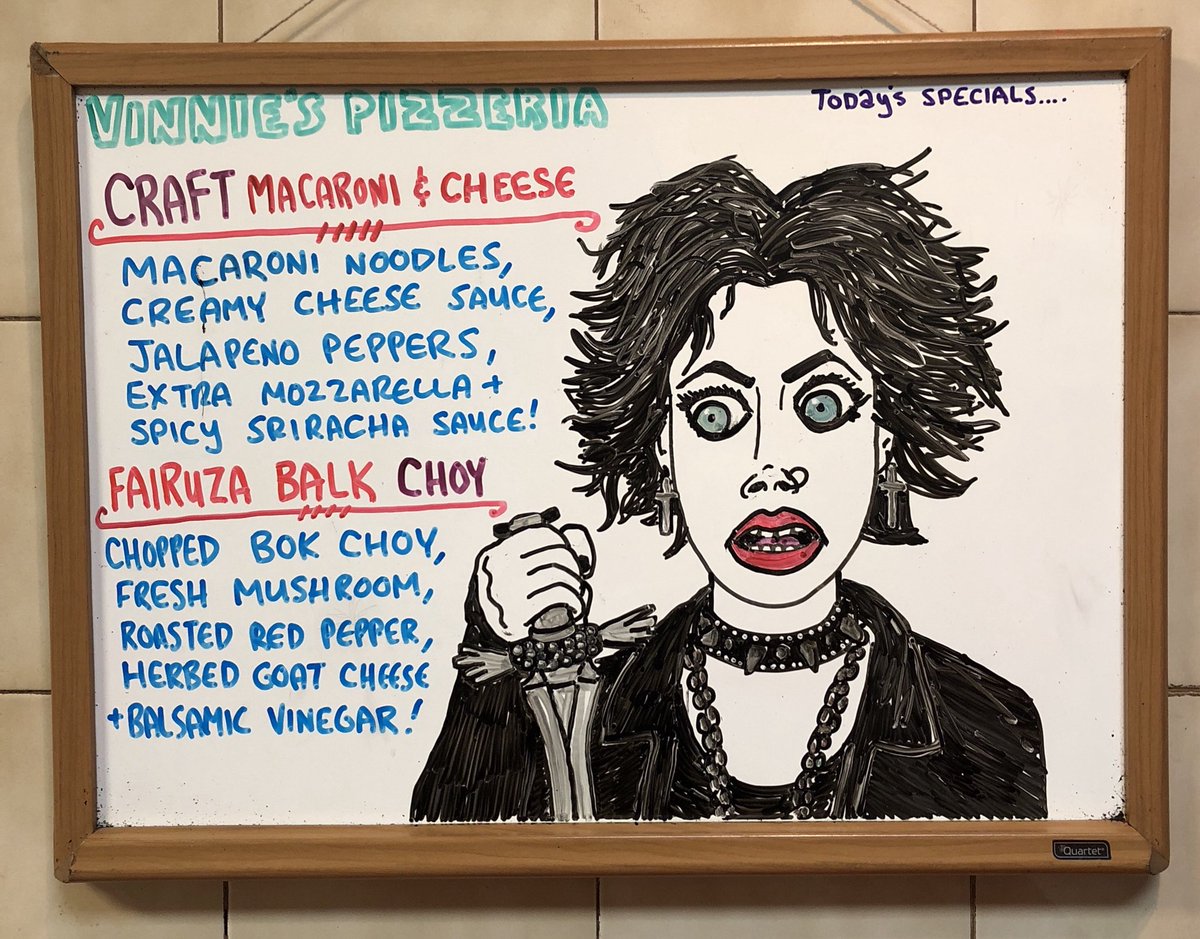 VINNIE'S PIZZERIA
TODAY'S SPECIALS....
CRAFT MACARONI & CHEESE
MACARONI NOODLES,
CREAMY CHEESE SAUCE,
JALAPENO PEPPERS,
EXTRA MOZZARELLA +
SPICY SRIRACHA SAUCE!
FAIRUZA BALK CHOY
CHOPPED BOK CHOY,
FRESH MUSHROOM,
ROASTED RED PEPPER,
HERBED GOAT CHEESE
+ BALSAMIC VINEGAR!
Quartet